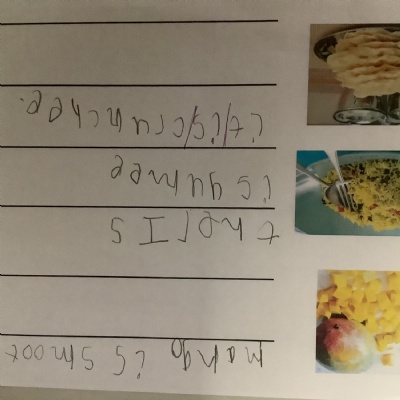 mango is smoot
the rIS
is yumee
it/is/crunchee.